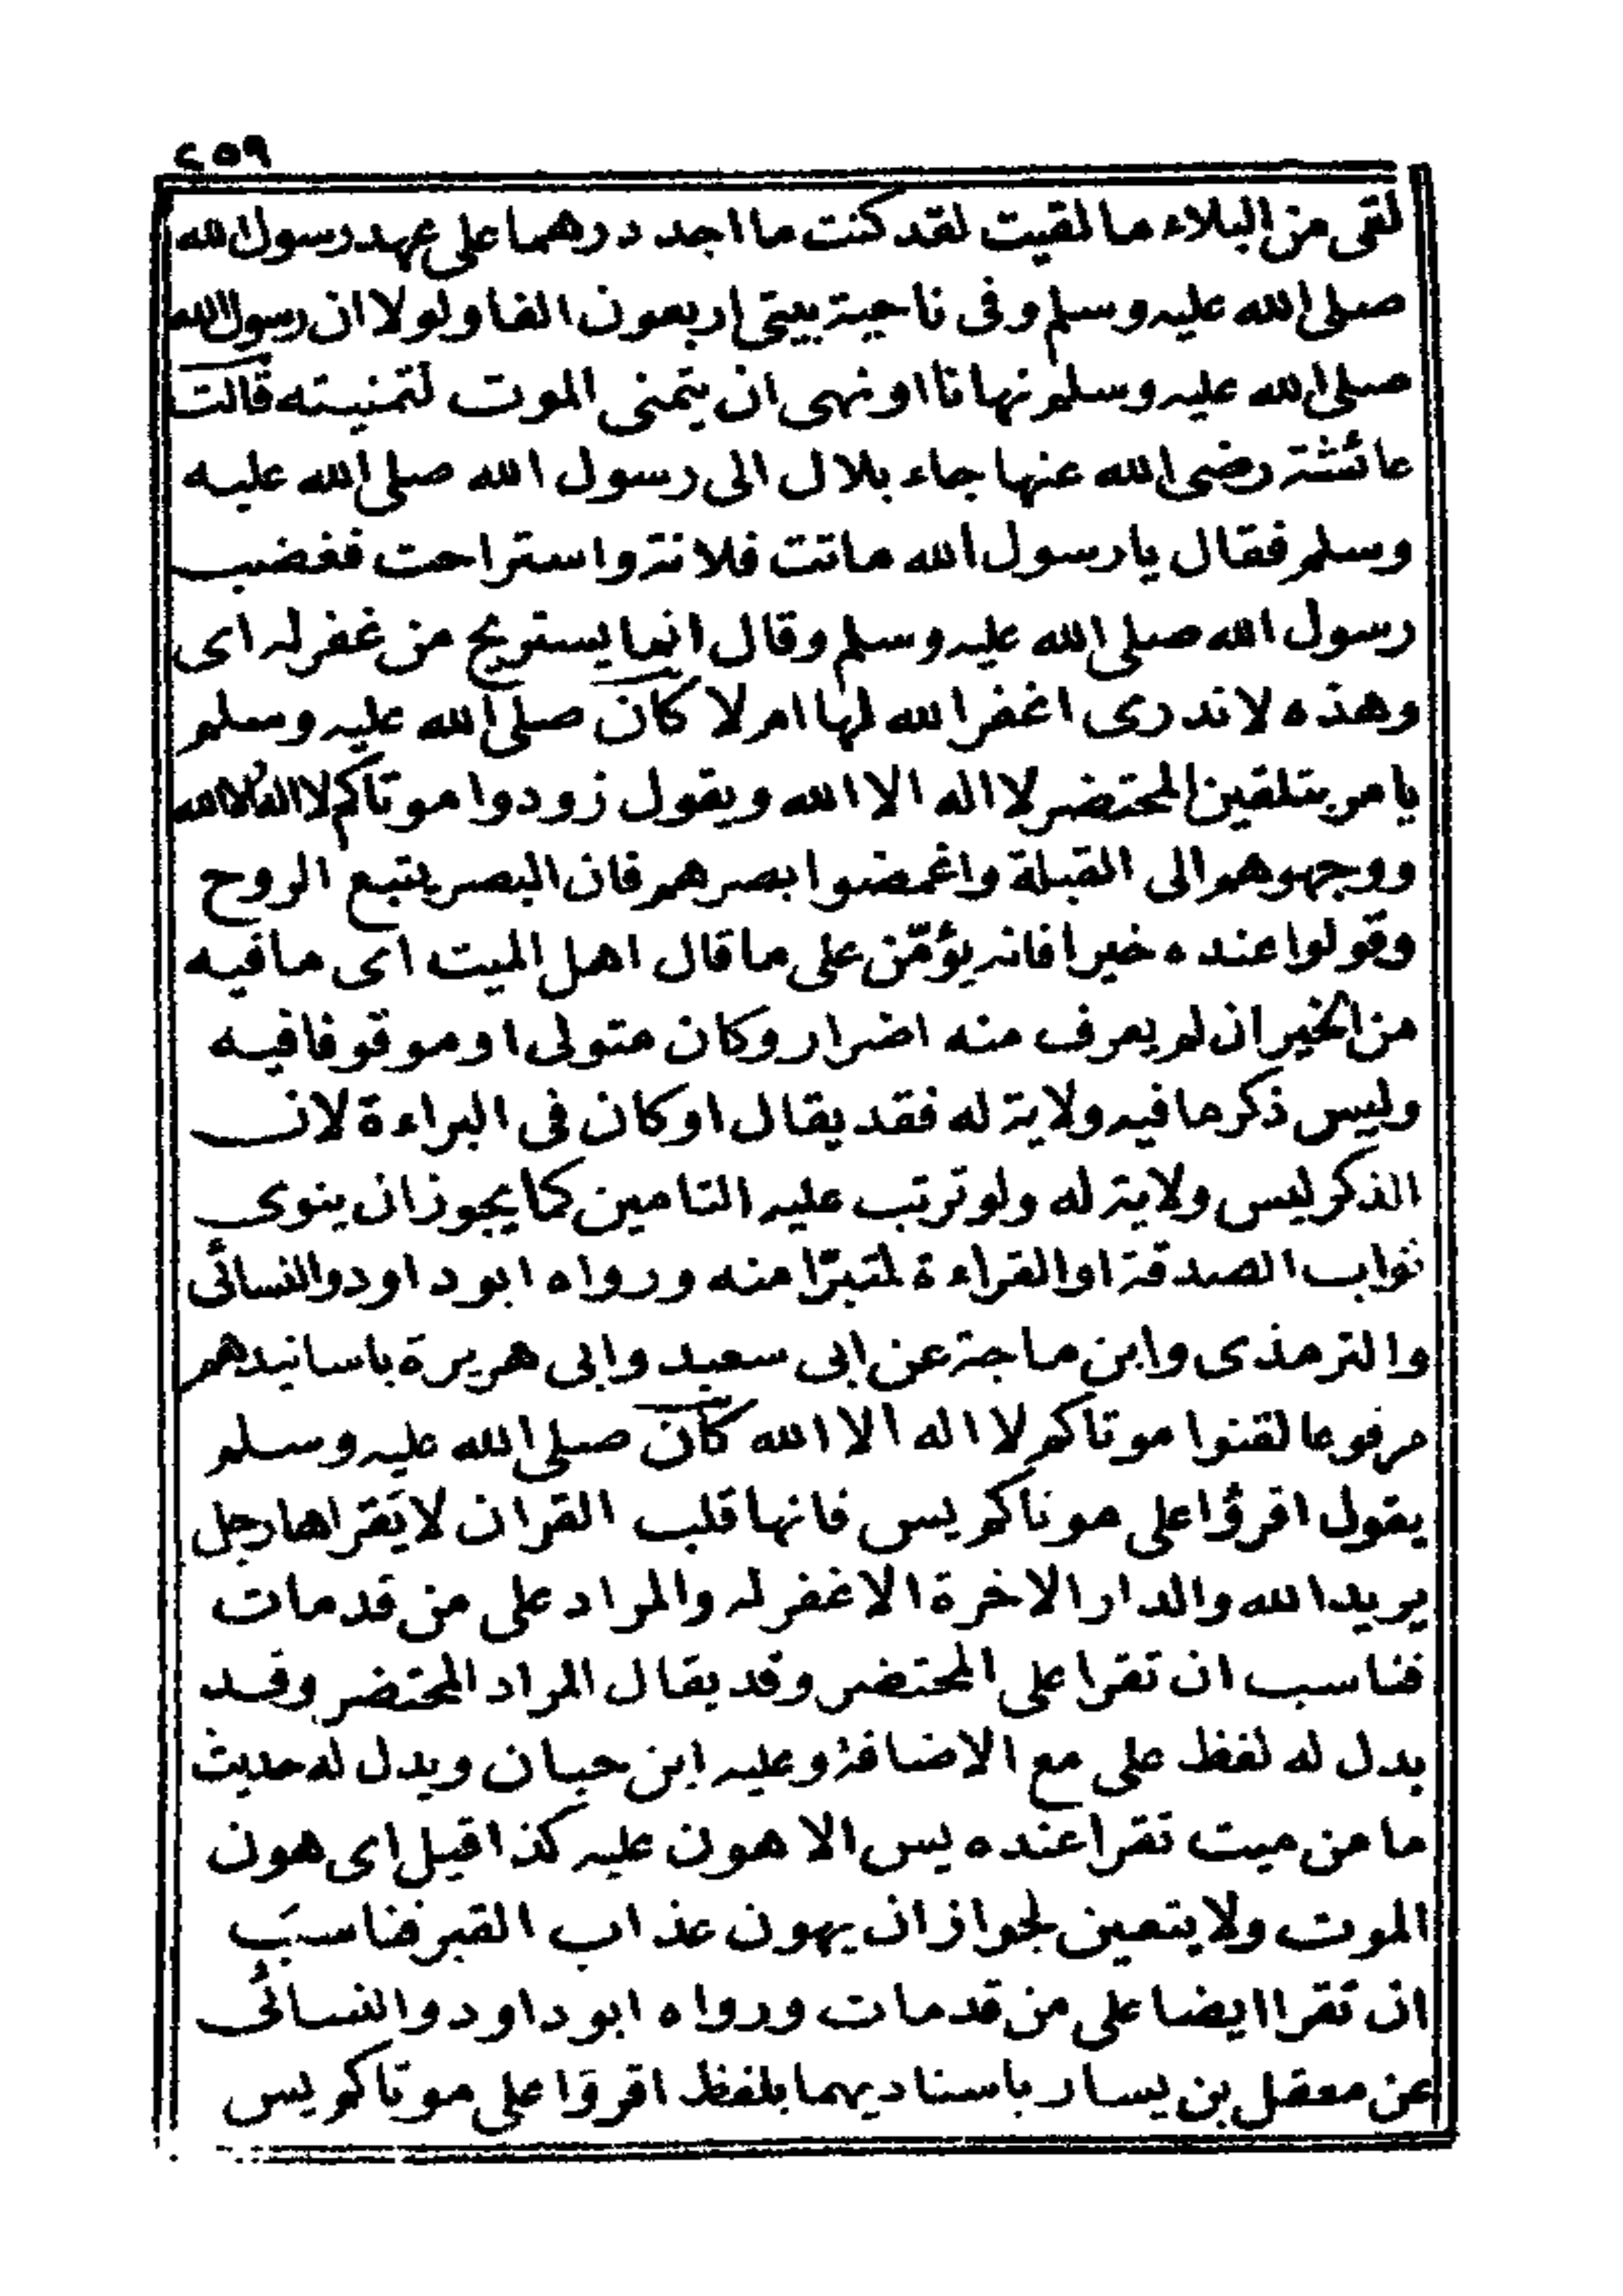 ٤٥٩
لقى من البلاء ما لقيت لقد كنت ما اجد درهما على عهد رسول الله
صلى الله عليه وسلم وفى ناحية بيتى اربعون الفا ولولا ان رسول الله
صلى الله عليه وسلم نهانا او نهى ان يتمنى الموت لتمنيته قالت
عائشة رضى الله عنها جاء بلال الى رسول الله صلى الله عليه
وسلم فقال يا رسول الله ماتت فلانة واستراحت فغضب
رسول الله صلى الله عليه وسلم وقال انما يستريح من غفر له اى
وهذه لا تدرى اغفر الله لها ام لا كان صلى الله عليه وسلم
يامر بتلقين المحتضر لا اله الا الله ويقول زودوا موتاكم لا اله الا الله
ووجهوهم الى القبلة واغمضوا بصرهم فان البصر يتبع الروح
وقولوا عنده خيرا فانه يؤمّن على ما قال اهل الميت اى ما فيه
من الخير ان لم يعرف منه اضرار وكان متولى او موقوفا فيه
وليس ذكر ما فيه ولاية له فقد يقال او كان فى البراءة لان
الذكر ليس ولاية له ولو ترتب عليه التامين كما يجوز ان ينوى
ثواب الصدقة او القراءة لمتبرّا منه ورواه ابو داود والنسائى
والترمذى وابن ماجة عن ابى سعيد وابى هريرة باسانيدهم
مرفوعا لقنوا موتاكم لا اله الا الله كان صلى الله عليه وسلم
يقول اقرؤا على موتاكم يس فانها قلب القران لا يَقراها رجل
يريد الله والدار الاخرة الا غفر له والمراد على من قد مات
فناسب ان تقرا على المحتضر وقد يقال المراد المحتضر وقد
يدل له لفظ على مع الاضافة وعليه ابن حبان ويدل له حديث
ما من ميت تقرا عنده يس الا هون عليه كذا قيل اى هون
الموت ولا يتعين لجواز ان يهون عذاب القبر فناسبَ
ان تقرا ايضا على من قد مات ورواه ابو داود والنسائى
عن معقل بن يسار باسناديهما بلفظ اقرؤا على موتاكم يس